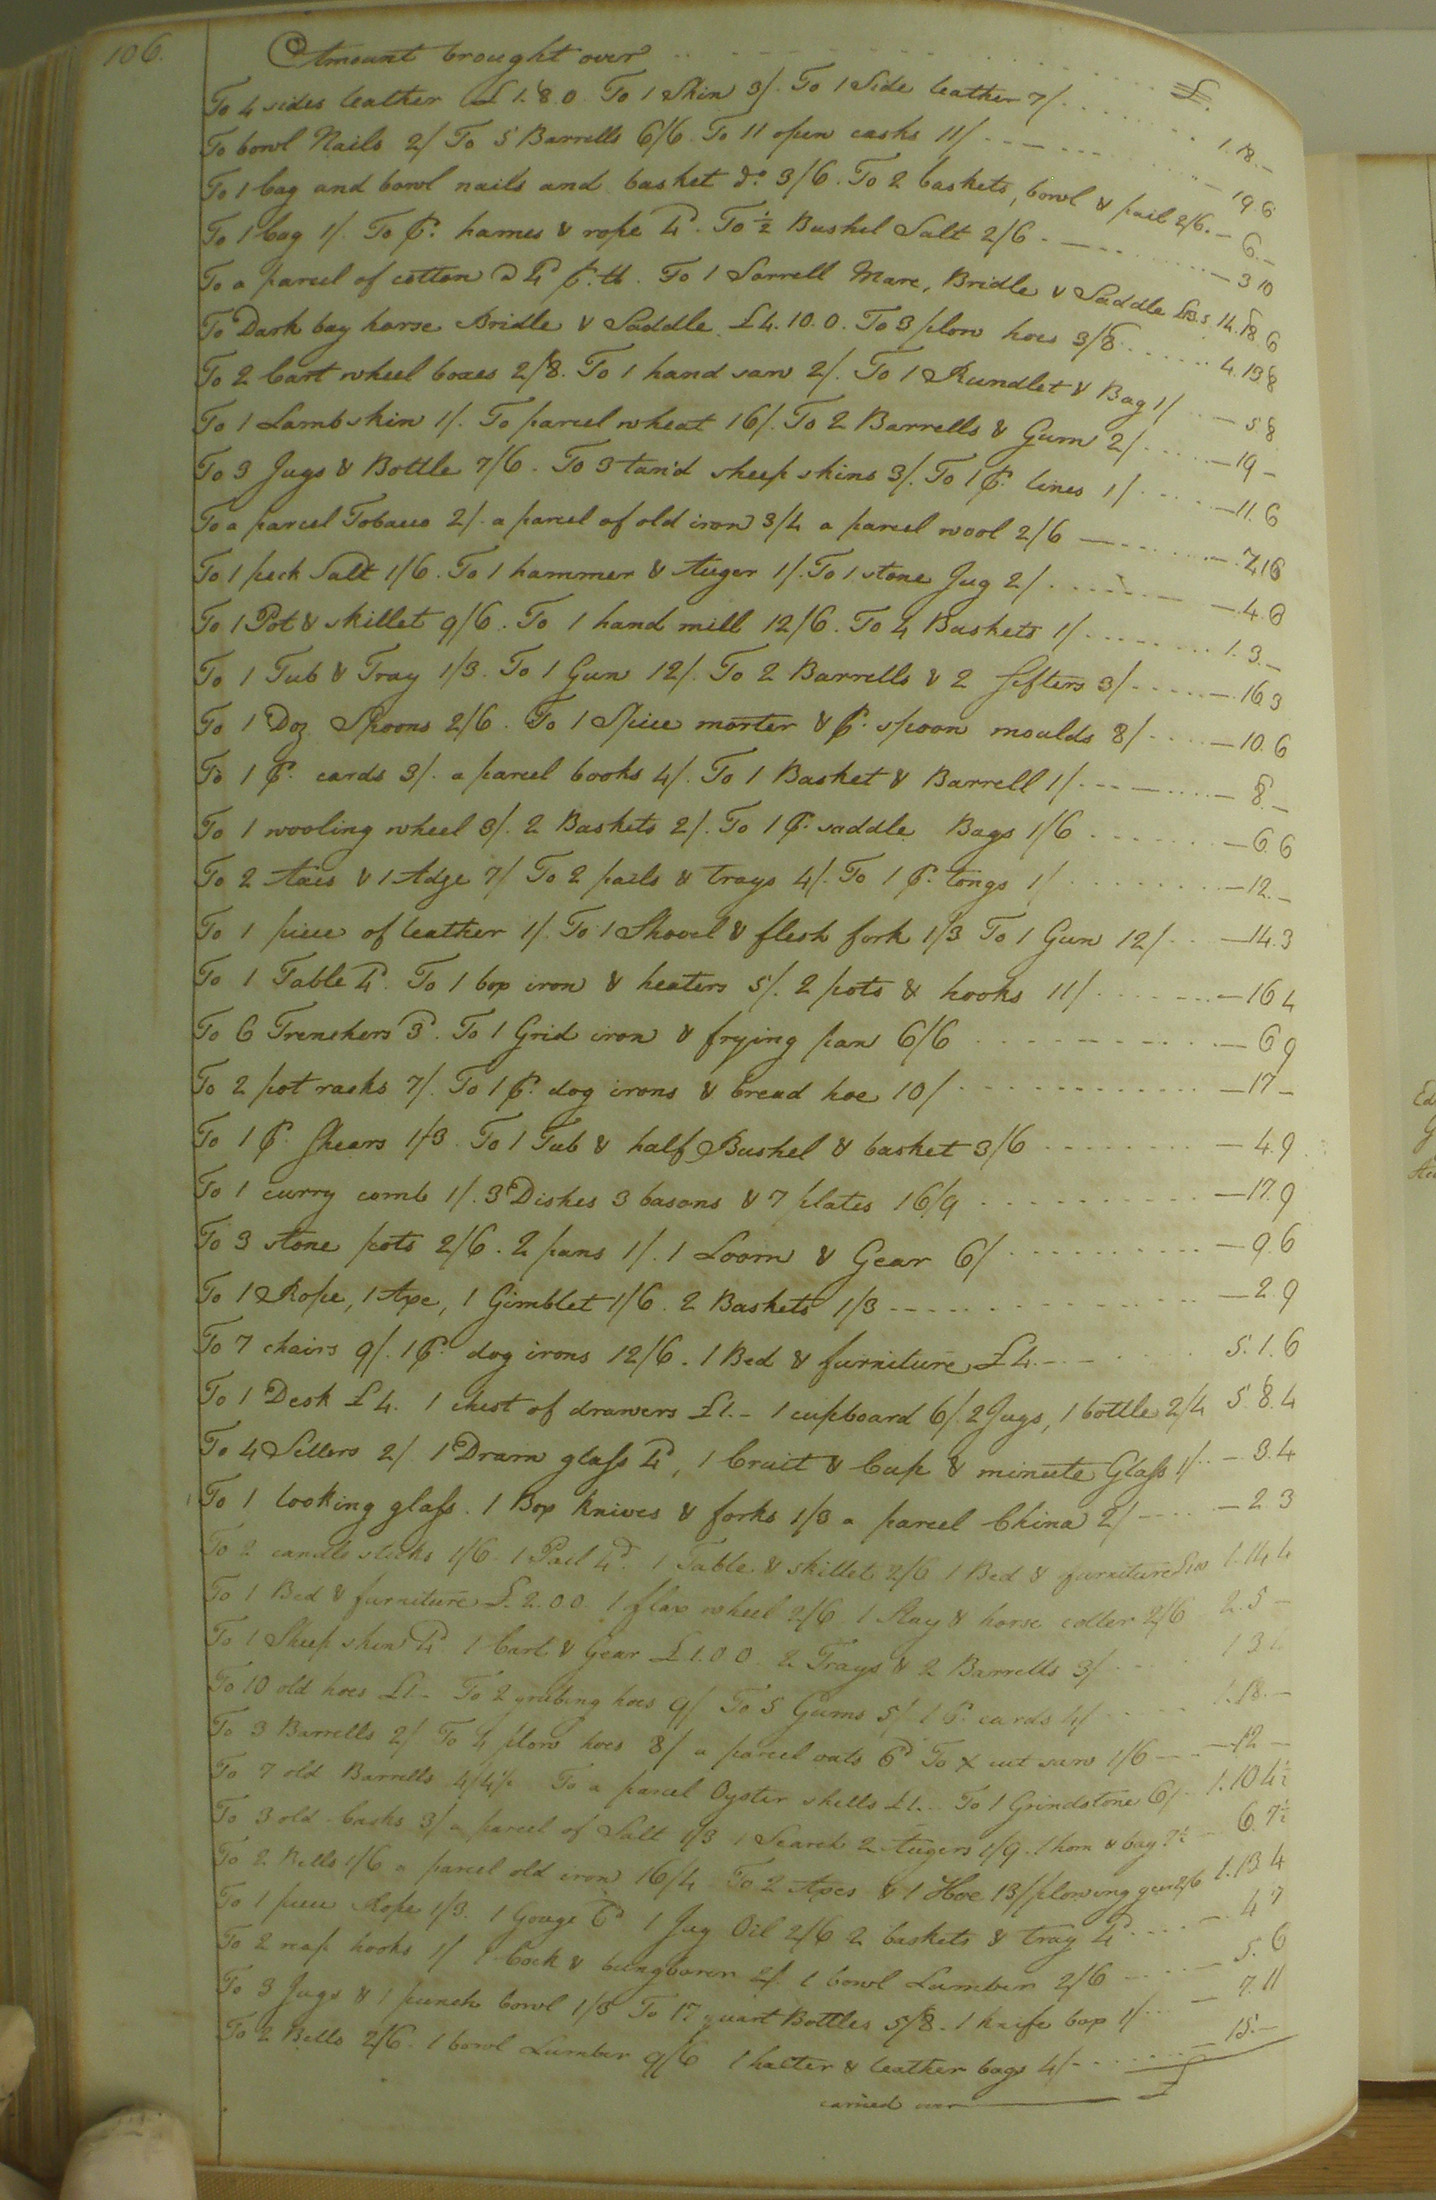 106.
Amount brought over £.
To 4 sides leather £1.8.0 To 1 Skin 3/. To 1 Side leather 7/ 1.18.–
To bowl Nails 2/ To 5 Barrells 6/6. To 11 open casks 11/ – 19.6
To 1 bag and bowl nails and basket do. 3/6. To 2 baskets, bowl & pail 2/6. – 6.–
To 1 bag 1/. To pr. hames & rope 4d. To ½ Bushel Salt 2/6 – 3 10
To a parcel of cotton @ 4d pr. lb. To 1 Sorrell Mare, Bridle & Saddle 14.18.6
To Dark bay horse Bridle & Saddle £4.10.0. To 3 plow hoes 3/8 4.13 8
To 2 Cart wheel boxes 2/8. To 1 hand saw 2/. To 1 Rundlet & Bag 1/ – 5 8
To 1 Lambskin 1/. To parcel wheat 16/. To 2 Barrells & Gum 2/ – 19 –
To 3 Jugs & Bottle 7/6. To 3 tan'd sheep skins 3/. To 1 pr. lines 1/ – 11.6
To a parcel Tobacco 2/. a parcel of old iron 3/4 a parcel wool 2/6 – 7.10
To 1 peck Salt 1/6. To 1 hammer & Auger 1/. To 1 stone Jug 2/ – 4.6
To 1 Pot & skillet 9/6. To 1 hand mill 12/6. To 4 Baskets 1/ 1.3.–
To 1 Tub & Tray 1/3. To 1 Gun 12/. To 2 Barrells & 2 sifters 3/ – 16 3
To 1 Doz Spoons 2/6. To 1 Spice morter & pr. spoon moulds 8/ – 10.6
To 1 pr. cards 3/. a parcel books 4/. To 1 Basket & Barrell 1/ – 8.–
To 1 wooling wheel 3/. 2 Baskets 2/. To 1 pr. saddle Bags 1/6 – 6.6
To 2 Axes & 1 Adze 7/ To 2 pails & trays 4/. To 1 pr. tongs 1/ – 12.–
To 1 piece of leather 1/. To 1 Shovel & flesh fork 1/3 To 1 Gun 12/ – 14.3
To 1 Table 4d. To 1 box iron & heaters 5/. 2 pots & hooks 11/ – 16 4
To 6 Trenchers 3d. To 1 Grid iron & frying pan 6/6 – 6 9
To 2 pot racks 7/. To 1 pr. dog irons & bread hoe 10/ – 17 –
To 1 pr. Shears 1/3. To 1 Tub & half Bushel & basket 3/6 – 4.9
To 1 curry comb 1/. 3 Dishes 3 basons & 7 plates 16/9 – 17.9
To 3 stone pots 2/6. 2 pans 1/. 1 Loom & Gear 6/ – 9.6
To 1 Rope, 1 Axe, 1 Gimblet 1/6. 2 Baskets 1/3 – 2.9
To 7 chairs 9/. 1 pr. dog irons 12/6. 1 Bed & furniture £4.– 5.1.6
To 1 Desk £4. 1 chest of drawers £1.– 1 cupboard 6/. 2 Jugs, 1 bottle 2/4 5.8.4
To 4 Sellers 2/ 1 Dram glass 4d, 1 Cruit & Cup & minute Glass 1/ – 3.4
To 1 looking glass. 1 Box knives & forks 1/3 a parcel China 2/ – 2 3
To 2 candle sticks 1/6. 1 Pail 4d. 1 Table & skillet 2/6 1 Bed & furniture 1.14 4
To 1 Bed & furniture £.2.0.0. 1 flax wheel 2/6 1 Slay & horse coller 2/6 2.5 –
To 1 Sheep skin 4d 1 Cart & Gear £1.0.0. 2 Trays & 2 Barrells 3/ 1 3 4
To 10 old hoes £1.– To 2 grubing hoes 9/ To 5 Gums 5/ 1 pr. cards 4/ 1.18.–
To 3 Barrells 2/ To 4 plow hoes 8/ a parcel oats 6d To X cut saw 1/6 – 12 –
To 7 old Barrells 4/4½ To a parcel Oyster shells £1.– To 1 Grindstone 6/ 1.10 4½
To 3 old Casks 3/ a parcel of Salt 1/3 1 Search 2 Augers 1/9. 1 horn & bag 7½ – 6.7½
To 2 Bells 1/6 a parcel old iron 16/4 To 2 Axes & 1 Hoe 13/ plowing gear 2/6 1.13 4
To 1 piece Rope 1/3. 1 Gouge 6d 1 Jug Oil 2/6 2 baskets & tray 4d – 4 7
To 2 reap hooks 1/ 1 Cock & bungborer 2/. 1 bowl Lumber 2/6 – 5.6
To 3 Jugs & 1 punch bowl 1/3 To 17 quart Bottles 5/8. 1 knife box 1/ – 7.11
To 2 Bells 2/6. 1 bowl Lumber 9/6 1 halter & leather bags 4/ – 15.–
carried over £